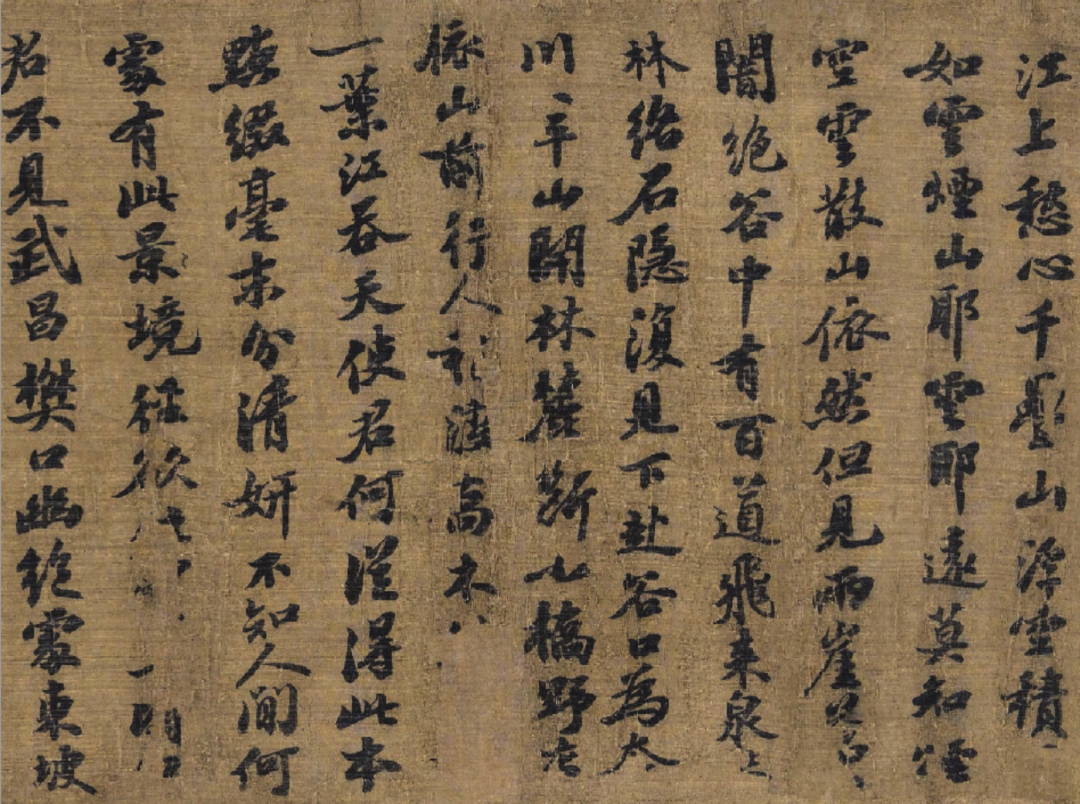 江上愁心千疊山浮空積
如雲煙山耶雲耶遠莫知煙
空雲散山依然但見兩崖
闇絕谷中有百道飛來泉
林絡石隱復見下赴谷口為
川平山開林麓斷小橋野店
依山前行人喬木
一葉江吞天使君何從得此本
點綴毫末分清妍不知人間何
處有此景境徑欲
君不見武昌樊口幽絕處東坡